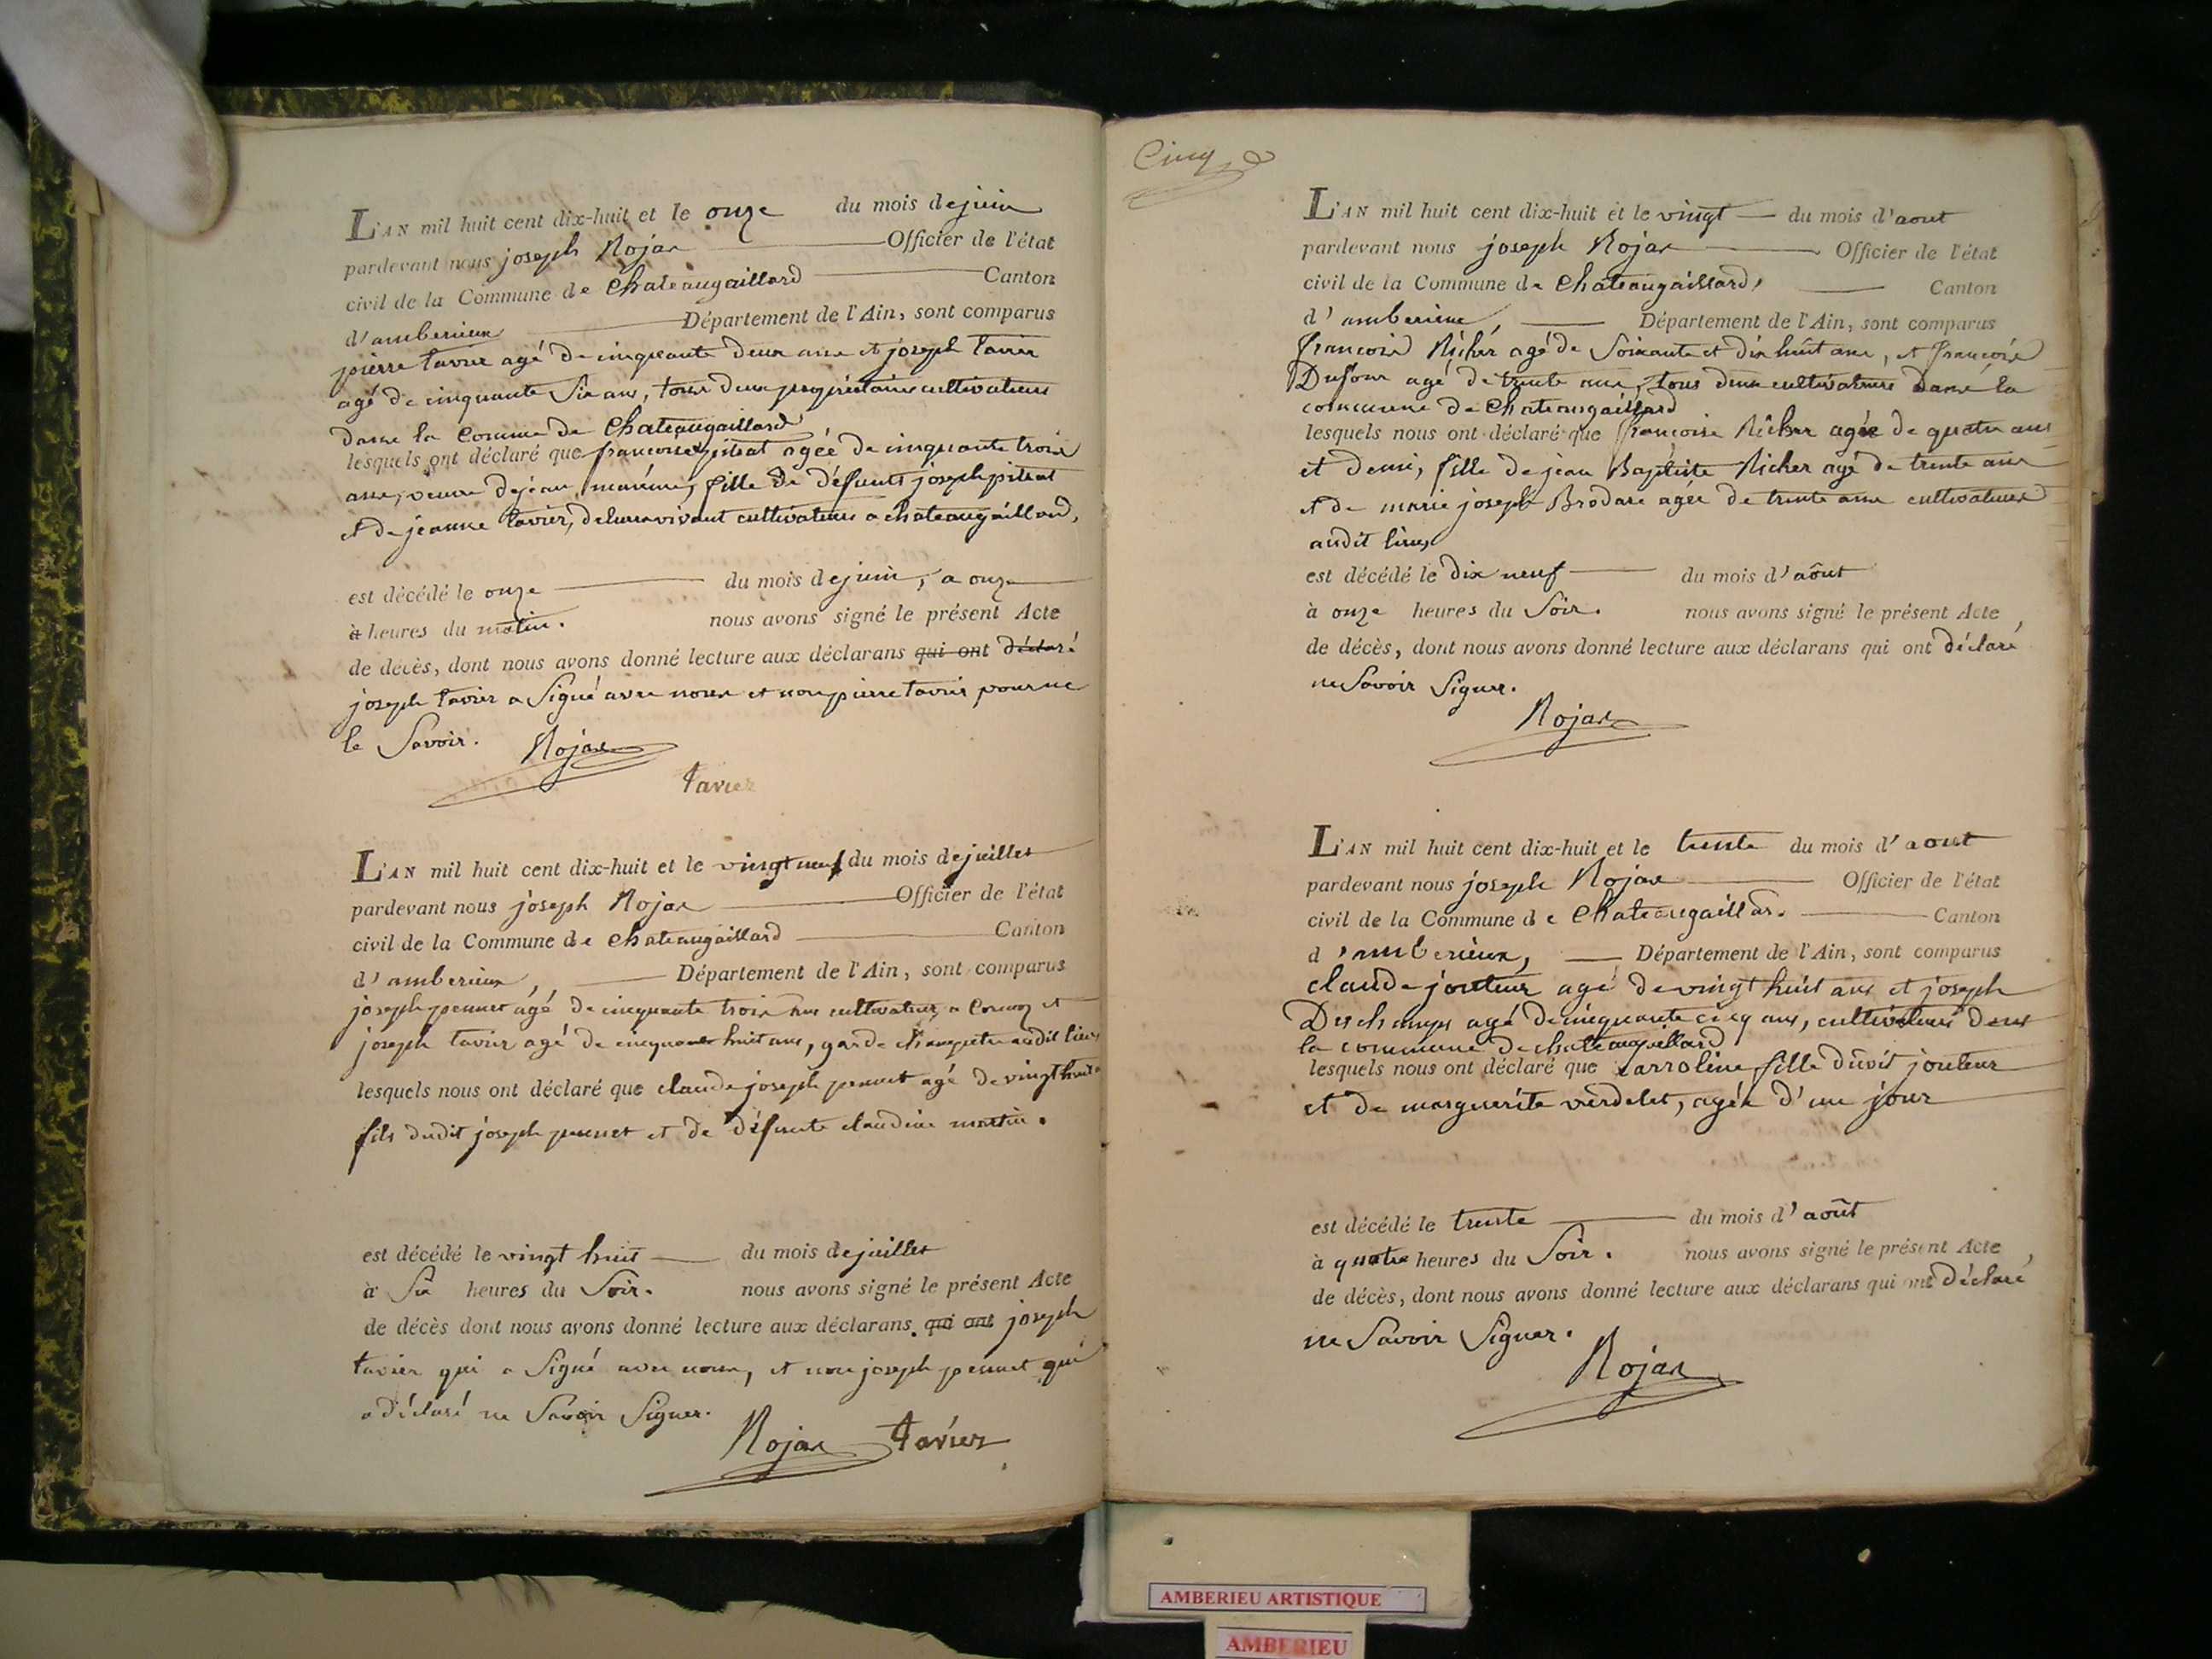 L'AN mil huit cent dix-huit et le onze du mois de juin
pardevant nous joseph Rojas Officier de l'état
civil de la Commune de Chateaugaillard Canton
d'amberieux Département de l'Ain, sont comparus
pierre tavier agé de cinquante deux ans et joseph tavier
agé de cinquante Six ans, tous deux propriétaires cultivateurs
dans la Comme de Chateaugaillard
lesquels ont déclaré que francoise pitrat agée de cinquante trois
ans, veuve de jean, fille de défunts joseph pitrat
et de jeanne tavier, de leur vivant cultivateurs a chateaugaillard,
est décédé le onze du mois de juin, a onze
à heures du matin. nous avons signé le présent Acte
de décès, dont nous avons donné lecture aux déclarans qui ont déclaré
joseph tavier a Signé avec nous et non pierre tavier pour ne
le Savoir. Rojas
tavier
L'AN mil huit cent dix-huit et le vingt neuf du mois de juillet
pardevant nous joseph Rojas Officier de l'état
civil de la Commune de chateaugaillard Canton
d'amberieux, Département de l'Ain, sont comparus
joseph pennet agé de cinquante trois ans cultivateur, a et
joseph tavier agé de cinquante huit ans, garde champetre audit lieu
lesquels nous ont déclaré que claude joseph pennet agé de vingt huit
fils dudit joseph pennet et de défunte claudine martin.
est décédé le vingt huit du mois de juillet
à Six heures du Soir. nous avons signé le présent Acte
de décès dont nous avons donné lecture aux déclarans. qui ont joseph
tavier qui a Signé avec nous, et non joseph pennet qui
a déclaré ne Savoir Signer.
Rojas tavier
Cinq
L'AN mil huit cent dix-huit et le vingt du mois d'aout
pardevant nous joseph Rojas Officier de l'état
civil de la Commune de Chateaugaillard, Canton
d'amberieux, Département de l'Ain, sont comparus
francois Richer agé de Soixante et dix huit ans, et francois
Dufour agé de trente ans, tous deux cultivateurs dans la
commune de Chateaugaillard
lesquels nous ont déclaré que francoise Richer agée de quatre ans
et demi, fille de jean Baptiste Richer agé de trente ans
et de marie joseph agée de trente ans cultivateurs
audit lieu,
est décédé le dix neuf du mois d'août
à onze heures du Soir. nous avons signé le présent Acte
de décès, dont nous avons donné lecture aux déclarans qui ont déclaré
ne Savoir Signer.
Rojas
L'AN mil huit cent dix-huit et le trente du mois d'aout
pardevant nous joseph Rojas Officier de l'état
civil de la Commune de Chateaugaillard. Canton
d'amberieux, Département de l'Ain, sont comparus
claude jouteur agé de vingt huit ans et joseph
Deschamps agé de cinquante cinq ans, cultivateurs dans
la commune de chateaugaillard
lesquels nous ont déclaré que Carroline fille dudit jouteur
et de marguerite verdelet, agée d'un jour
est décédé le trente du mois d'août
à quatre heures du Soir. nous avons signé le présent Acte
de décès, dont nous avons donné lecture aux déclarans qui ont déclaré
ne Savoir Signer.
Rojas
AMBERIEU ARTISTIQUE
AMBERIEU